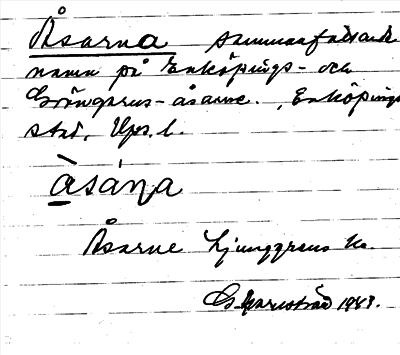 Åsarna sammanfattande
namn på Enköpings- och
Gröngarns-åsarne., Enköpings
stad, Ups. l.
àsáṇa
Åsarne Ljunggrens k.
1943.